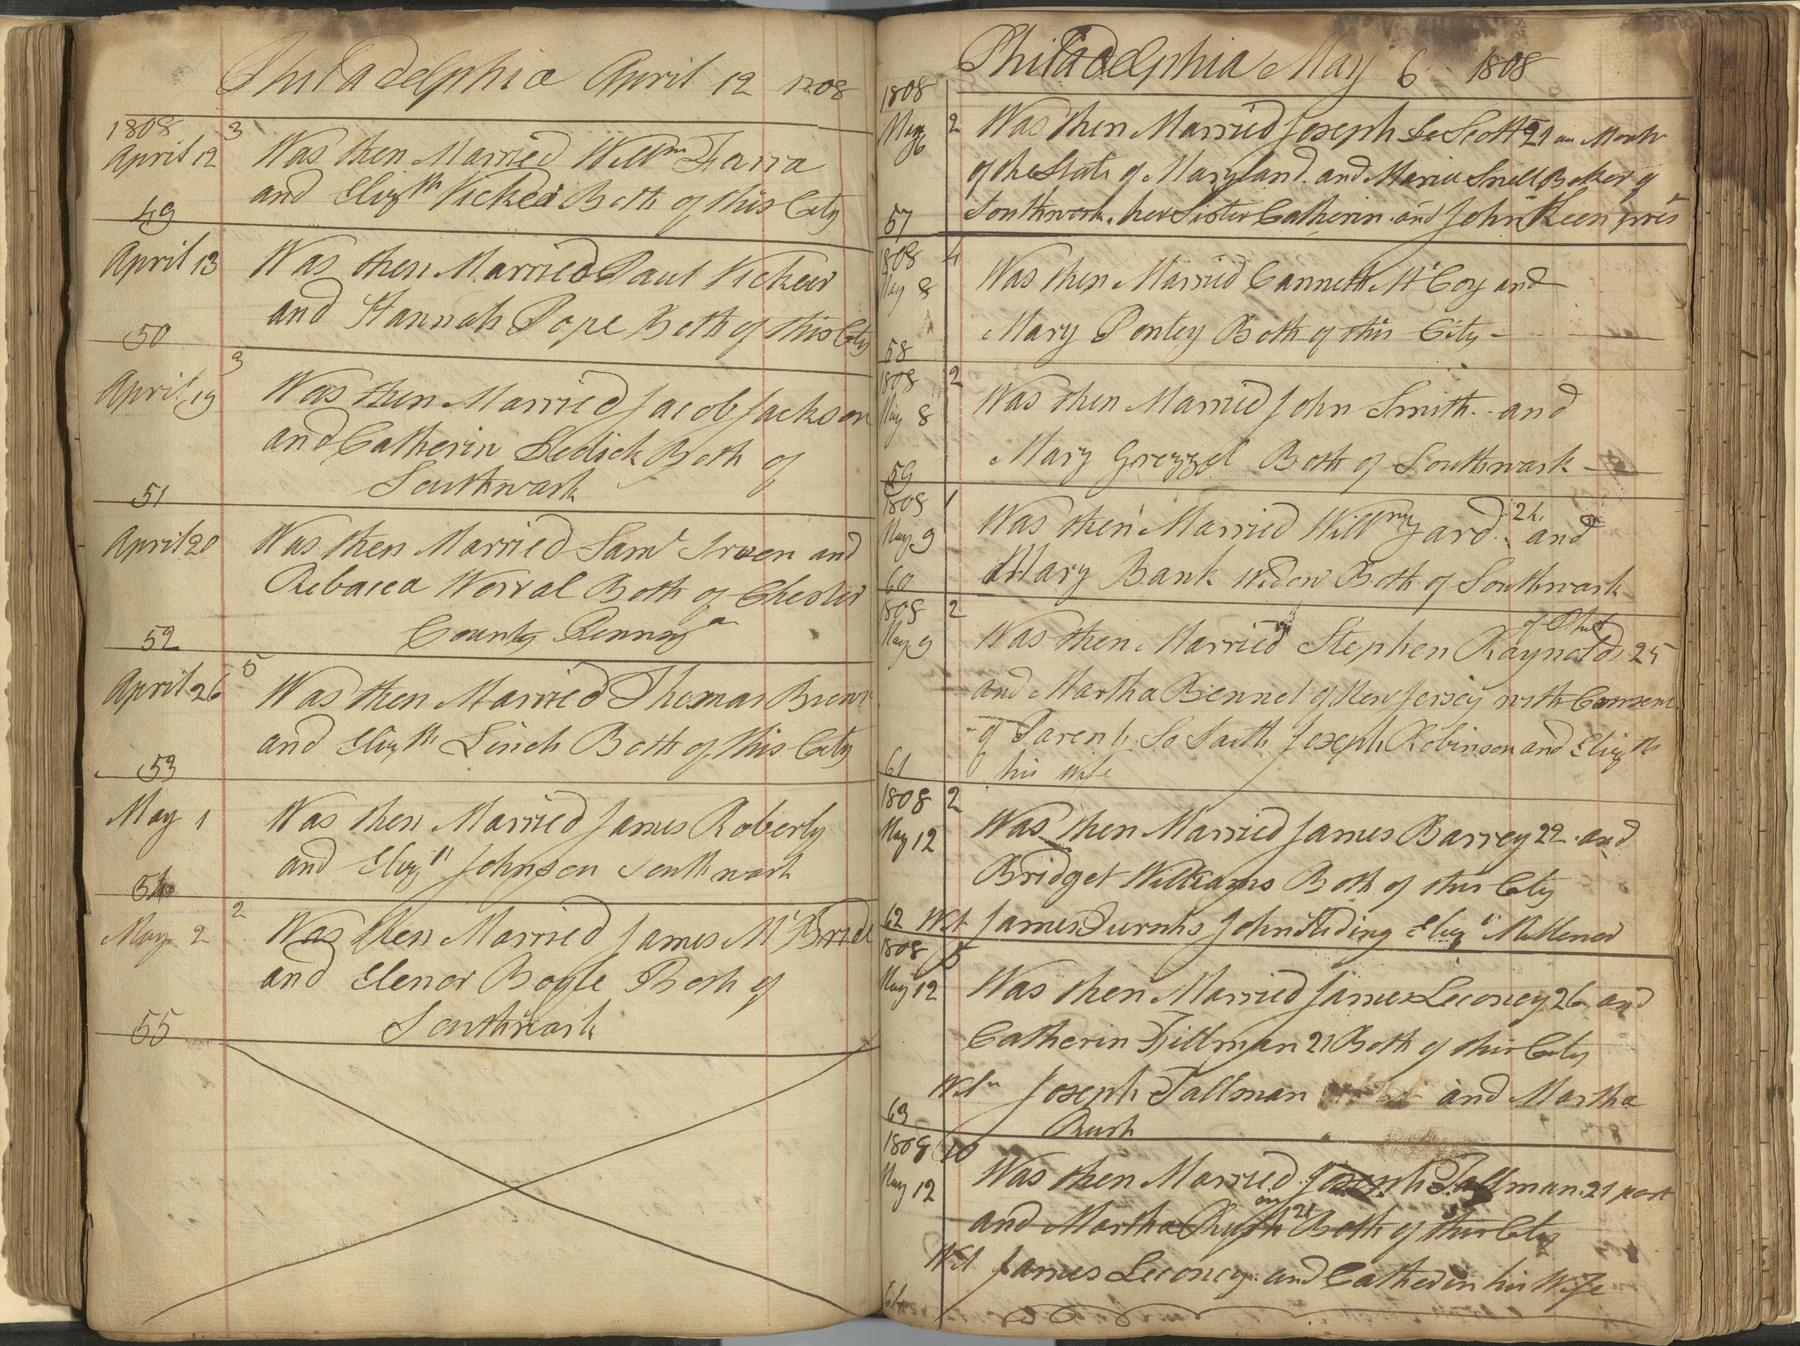 Philadelphia April 12 1808
1808
April 12 3 Was then Married Willm Farra
and Elizth Vicker Both of this City
49
April 13 Was then Married Paul Vicker
and Hannah Pope Both of this City
50
3
April 19 Was then Married Jacob Jackson
and Catherin Sedick Both of
Southwark
51
April 20 Was then Married Saml Irwen and
Rebacca Worral Both of Chester
County Pennsya
52
5
April 26 Was then Married Thomas Brown
and Elizth Linch Both of this City
53
May 1 Was then Married James Roberty
and Elizth Johnson Southwark
54
2
May 2 Was then Married James McBride
and Elenor Bogle Both of
Southwark
55
Philadelphia May 6 1808
1808
May 6 2 Was then Married Joseph Scott 21
of the State of Maryland and Maria Snell Baker of
57 Southwark, her Sister Catherin and John Keen
1808 4
May 8 Was then Married Canneth McCoy and
Mary Pontey Both of this City
58
1808 2
May 8 Was then Married John Smith and
Mary Grezzel Both of Southwark
59
1808 1
May 9 Was then Married Willm Yard and
Mary Bank Widow Both of Southwark
60
1808 2
May 9 Was then Married Stephen Raynolds 25
and Martha Bennel of New Jersey with Consent
of Parents So Saith Joseph Robinson and Elizth
61 his wife
1808 2
May 12 Was then Married James Barrey 22 and
Bridget Williams Both of this City
62 Wit James Burnks John Eliz
1808 5
May 12 Was then Married James Leconey 26 and
Catherin Tillman 21 Both of this City
Wit Joseph Tallman and Martha
63 Rush
1808 10
May 12 Was then Married Joseph Tallman 21
and Martha Rush 21 Both of this City
Wit James Leconey and Catherin his Wife
64